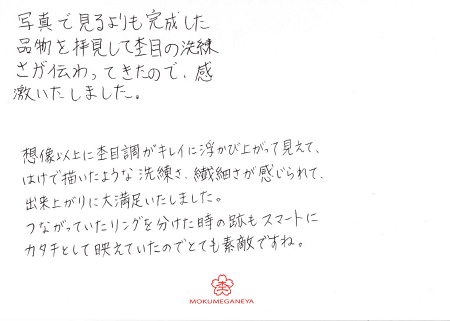 写真で見るよりも完成した
品物を拝見して杢目の洗練
さが伝わってきたので、感
激いたしました。
想像以上に杢目調がキレイに浮かび上がって見えて、
はけで描いたような洗練さ、繊細さが感じられて、
出来上がりに大満足いたしました。
つながっていたリングを分けた時の跡もスマートに
カタチとして映えていたのでとても素敵ですね。
杢
MOKUMEGANEYA